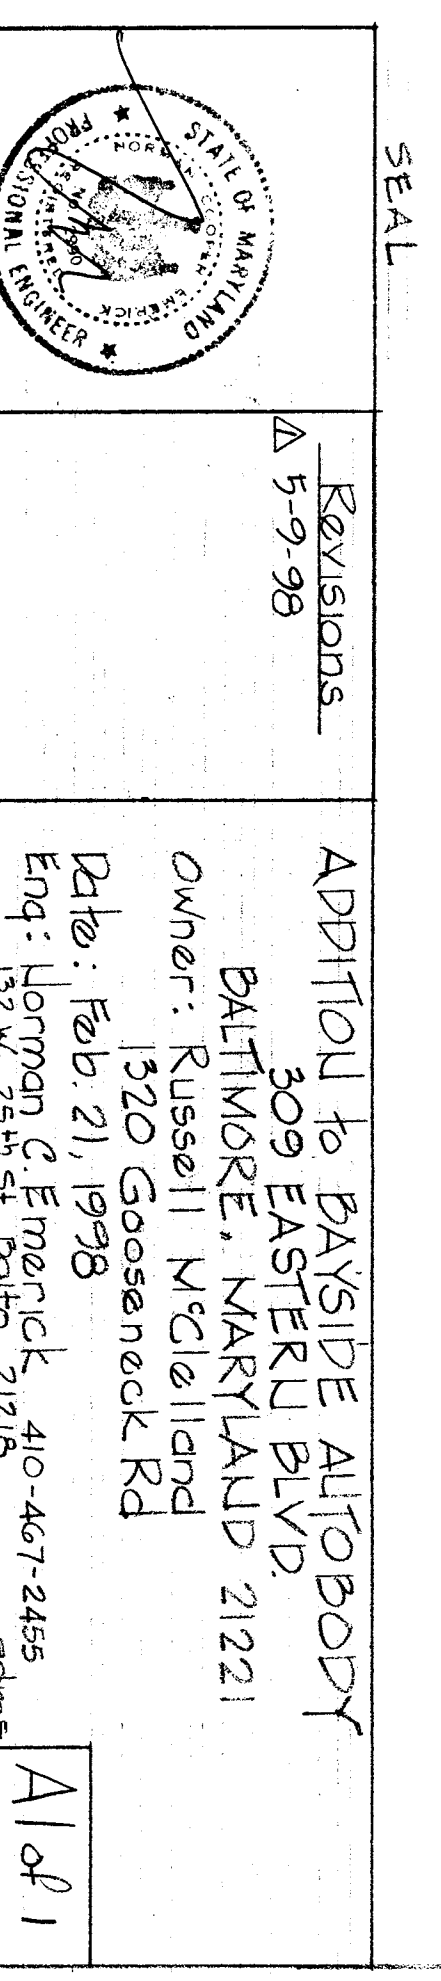 SEAL
STATE OF MARYLAND
PROFESSIONAL ENGINEER
NORMAN EMERICK
REGISTERED
No.
Revisions
1 5-9-98
ADDITION to BAYSIDE AUTOBODY
309 EASTERN BLVD.
BALTIMORE, MARYLAND 21221
Owner: Russell McClelland
1320 Gooseneck Rd
Date: Feb. 21, 1998
Eng: Norman C. Emerick 410-467-2455
132 W. 25th St. Balto. 21218
A1 of 1